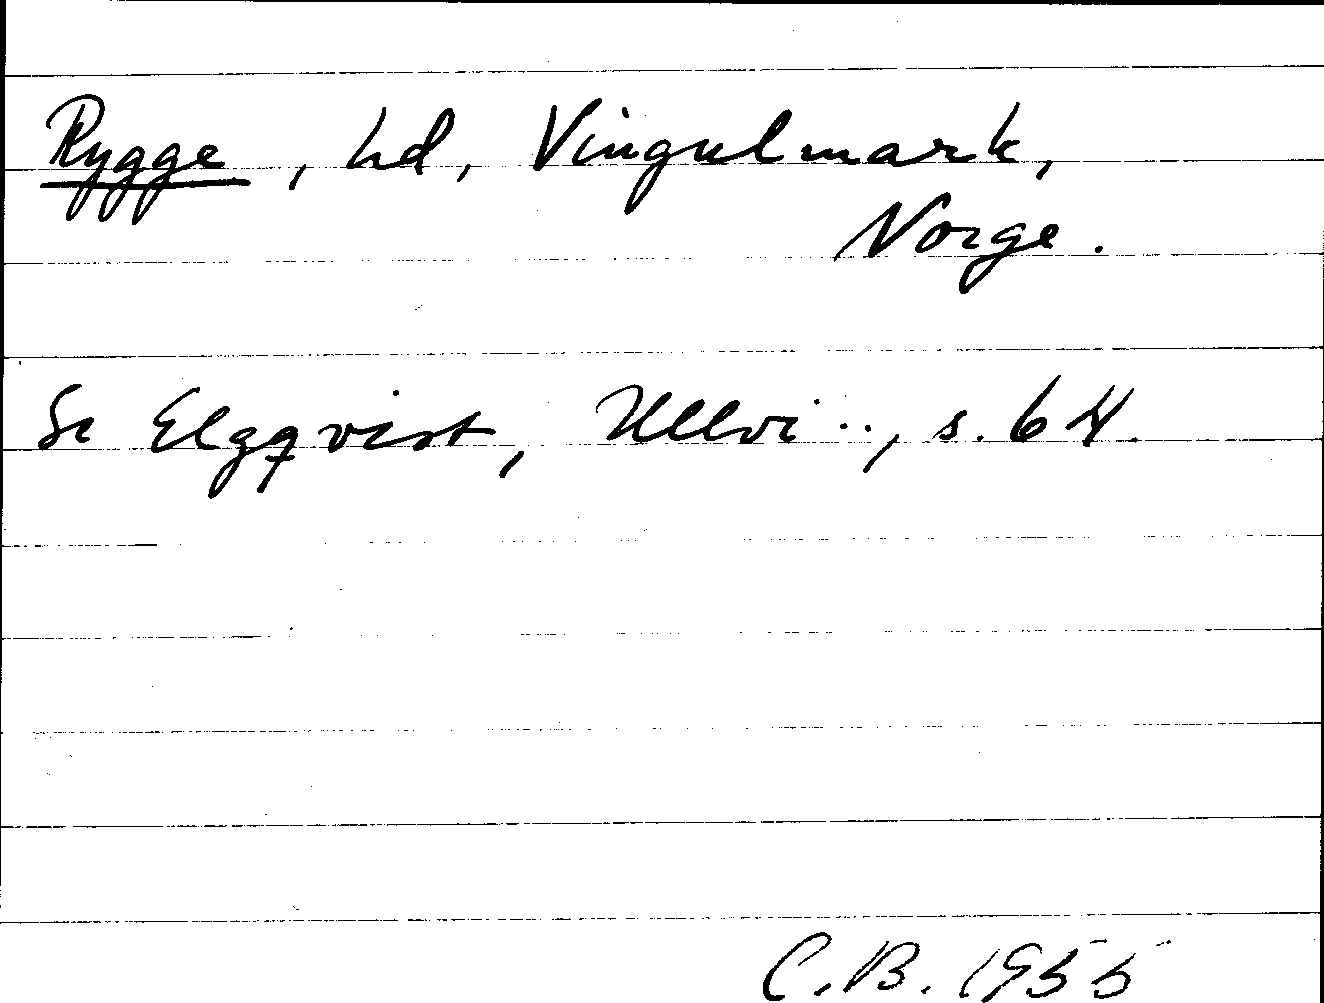 Rygge, hd, Vingulmark,
Norge.
Se Elgqvist, Ullvi.., s. 64.
C.B. 1955